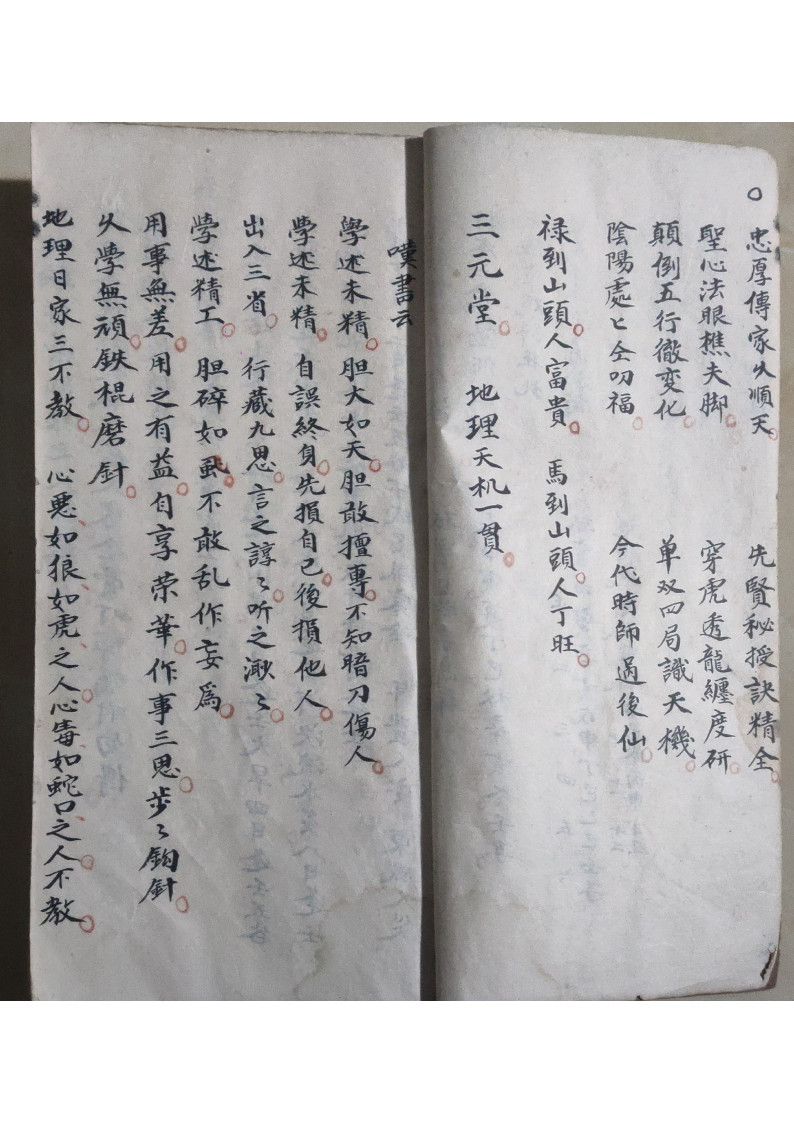 ○忠厚傳家久順天。 先賢秘授訣精全。
聖心法眼樵夫脚。 穿虎透龍纏度研。
顛倒五行徹变化。 单双四局識天機。
陰陽處〻仝叨福。 今代時師過後仙。
禄到山頭人富貴。 馬到山頭人丁旺。
三元堂。 地理天机一貫。
嘆書云
學述未精。胆大如天。胆敢擅專。不知暗刀傷人。
學述未精。自誤終身。先損自己。後損他人。
出入三省。行藏九思。言之諄〻。听之漱〻。
學述精工。胆碎如虱。不敢乱作妄爲。
用事無差。用之有益。自享荣華。作事三思。步〻鈎針。
久學無頑。鉄棍磨針。
地理日家三不教。心悪如狼如虎之人。心毒如蛇口之人不教。